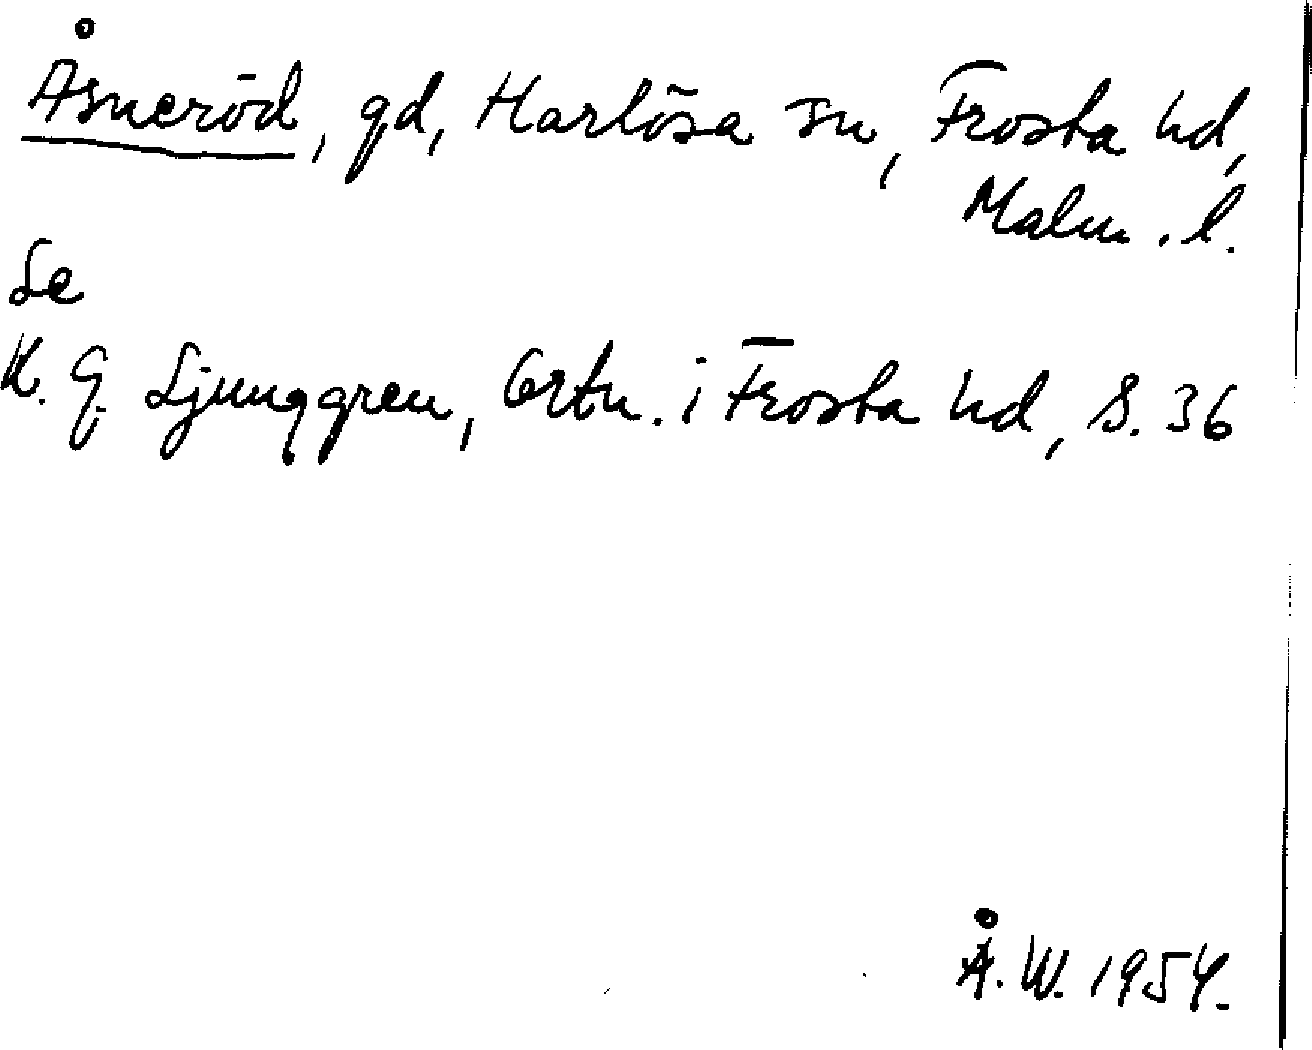 Åsneröd, gd, Harlösa sn, Frosta hd,
Malm. l.
Se
K. G. Ljunggren, Ortn. i Frosta hd, S. 36
Å. W. 1954.